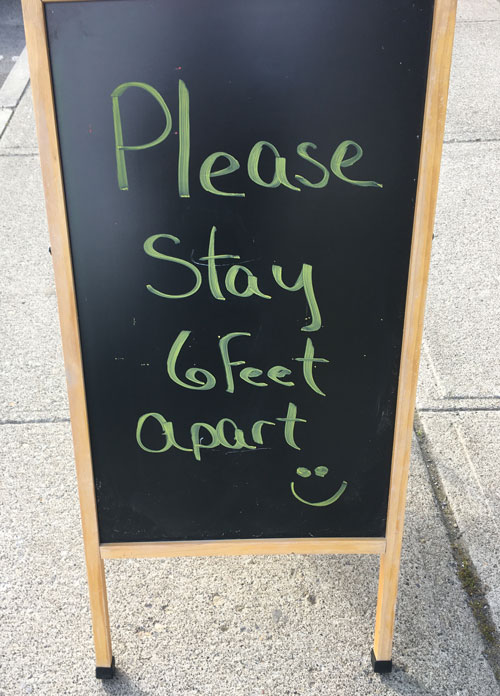 Please
Stay
6 Feet
apart